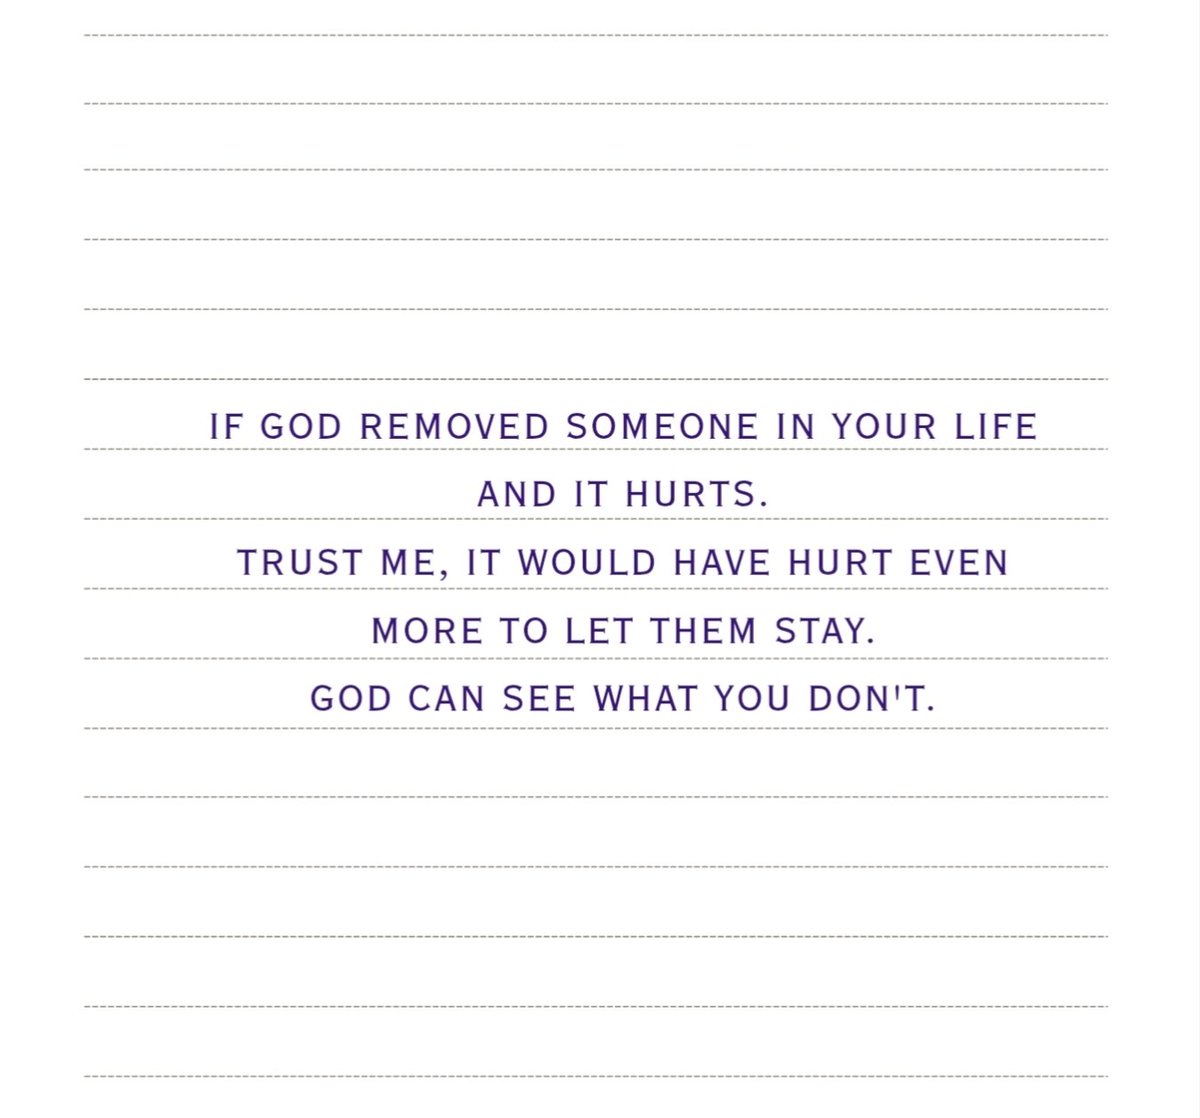 IF GOD REMOVED SOMEONE IN YOUR LIFE
AND IT HURTS.
TRUST ME, IT WOULD HAVE HURT EVEN
MORE TO LET THEM STAY.
GOD CAN SEE WHAT YOU DON'T.